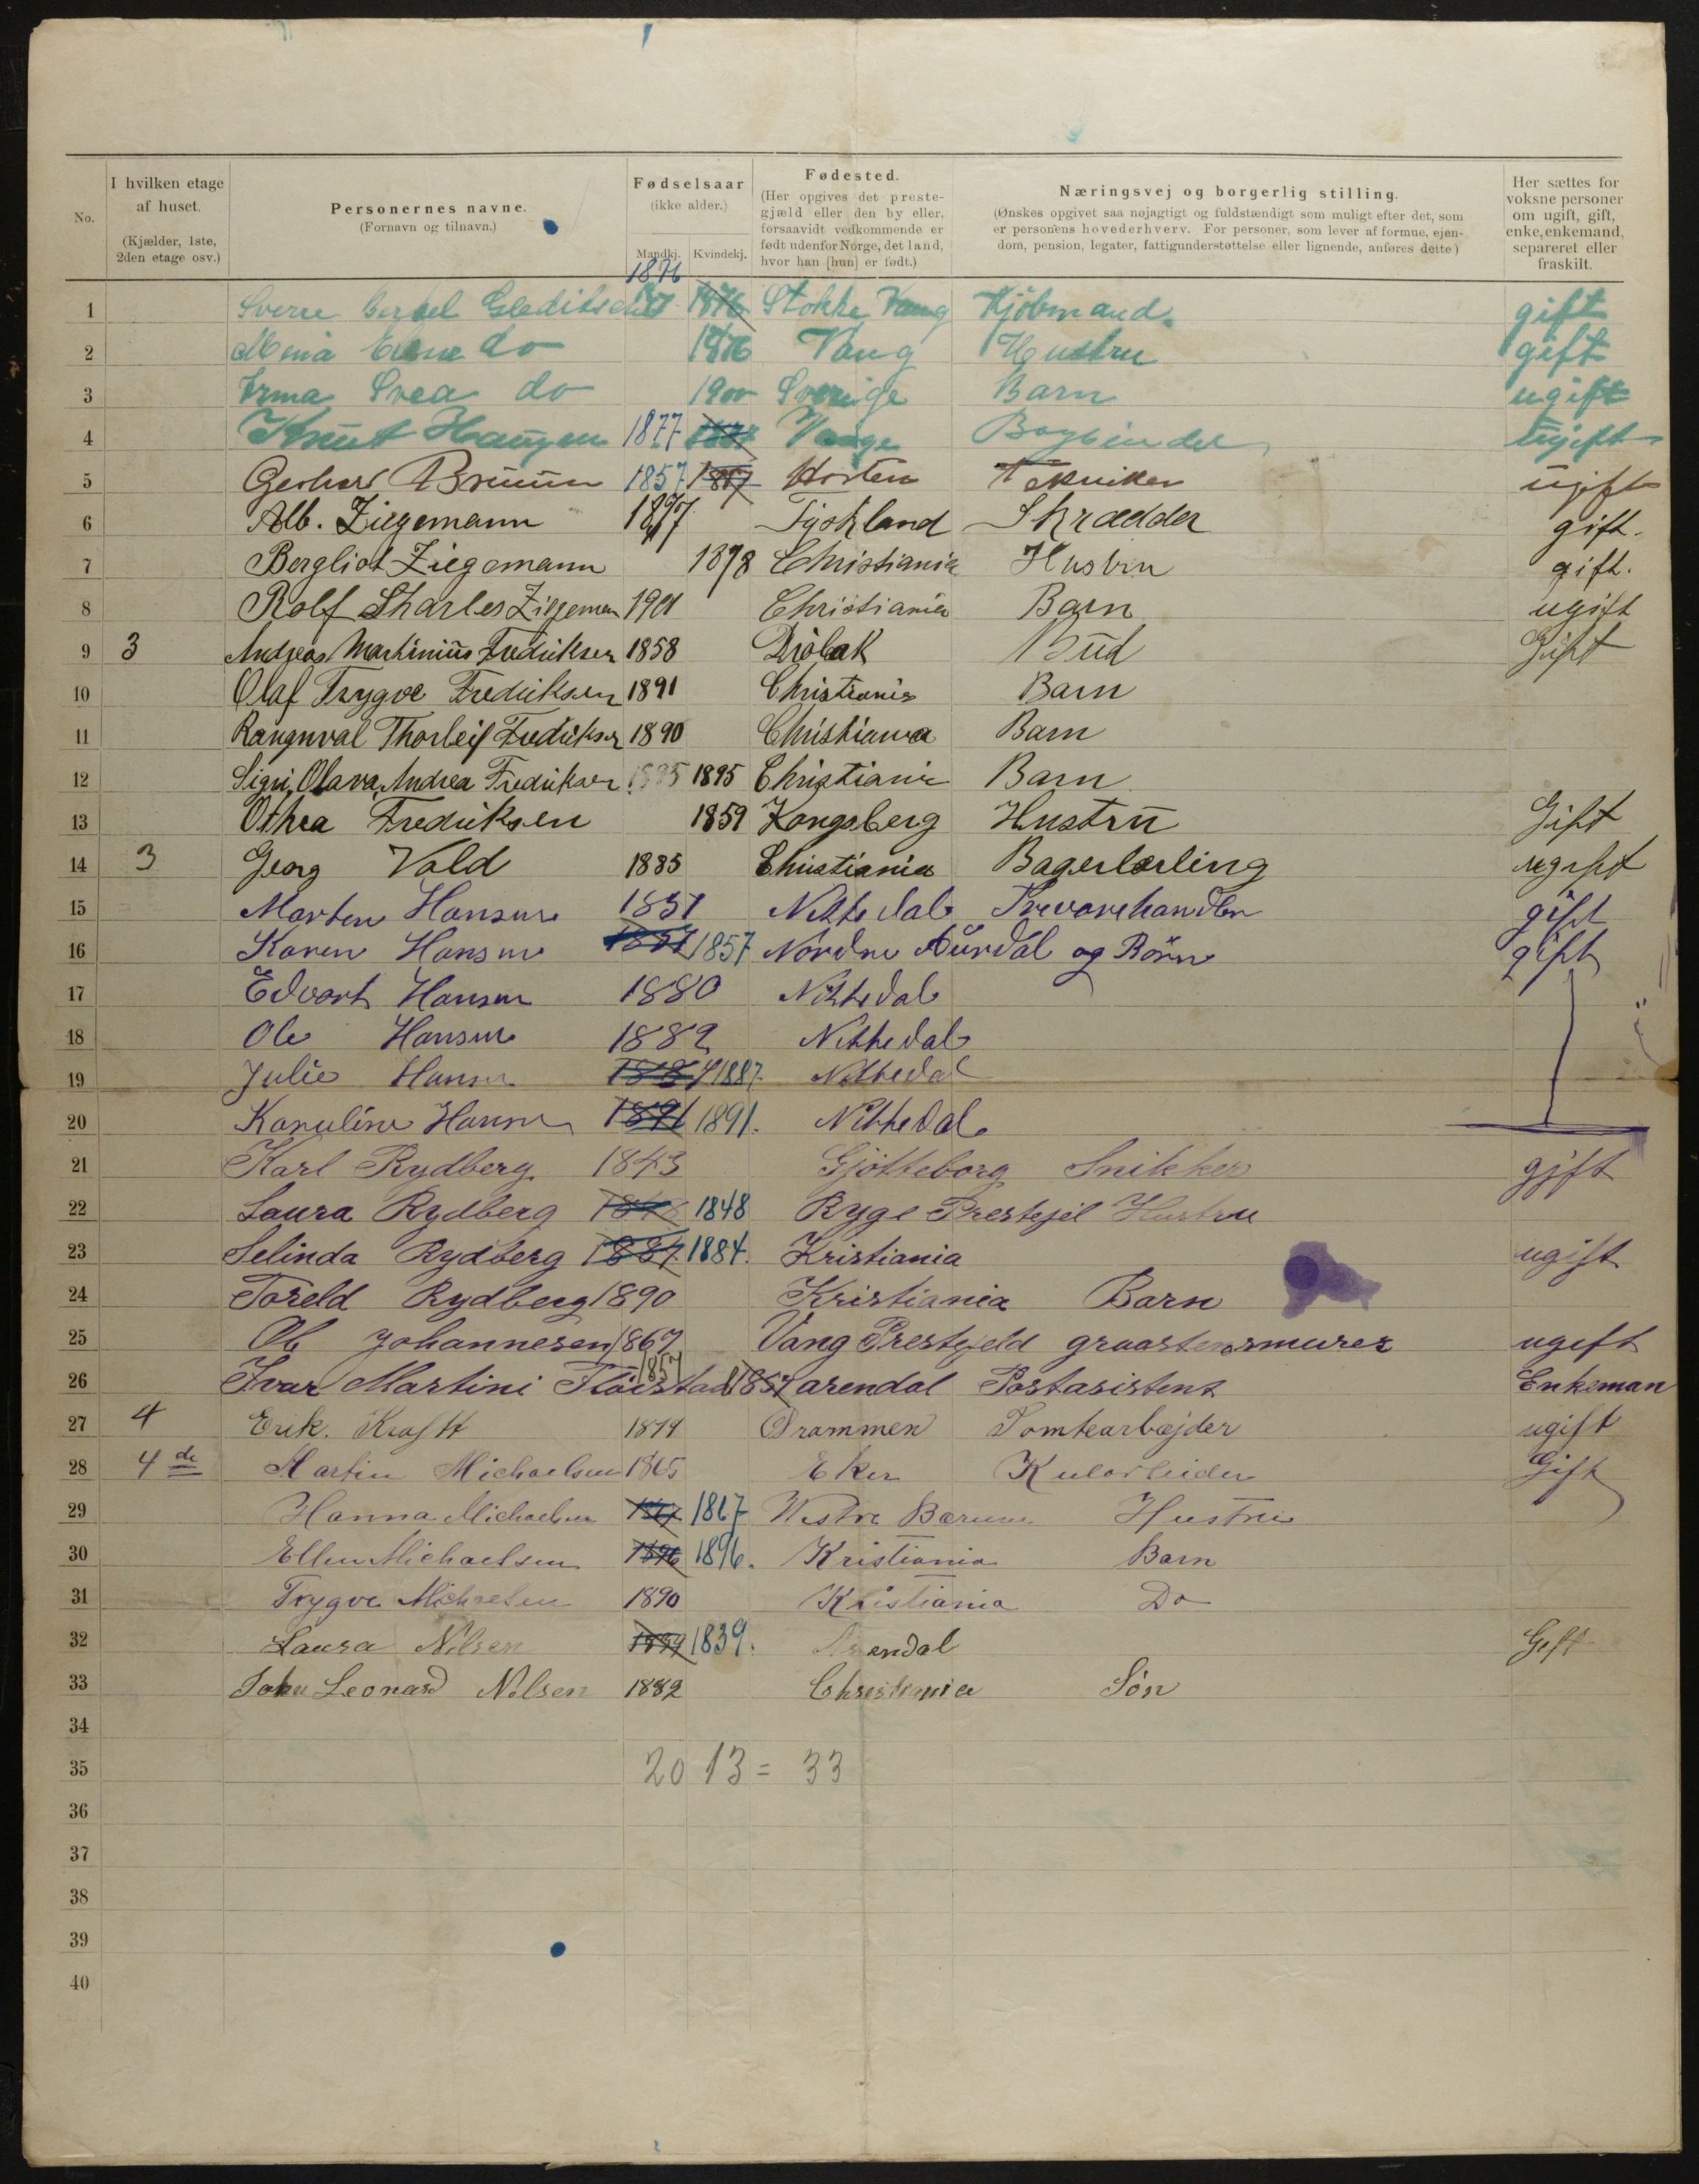 No. I hvilken etage af huset. (Kjælder, 1ste, 2den etage osv.) Personernes navne. (Fornavn og tilnavn.) Fødselsaar (ikke alder.) Mandkj. Kvindekj. Fødested. (Her opgives det prestegjæld eller den by eller, forsaavidt vedkommende er født udenfor Norge, det land, hvor han [hun] er født.) Næringsvej og borgerlig stilling. (Ønskes opgivet saa nøjagtigt og fuldstændigt som muligt efter det, som er personens hovederhverv. For personer, som lever af formue, ejendom, pension, legater, fattigunderstøttelse eller lignende, anføres dette) Her sættes for voksne personer om ugift, gift, enke, enkemand, separeret eller fraskilt.
1 Sverre Gleditsch 1876 1876 Stokke Vang Kjöbmand. gift
2 do 1876 Vang Hustru gift
3 Irma Svea do 1900 Sverige Barn ugift
4 Knut Haugen 1877 Vange Bogbinder ugift
5 Gerhard Bruun 1857 1857 Horten Tekniker ugift
6 Alb. Ziegemann 1877 Tyskland Skrædder gift.
7 Bergliot Ziegemann 1878 Christiania Hustru gift.
8 Rolf Charles Ziegeman 1901 Christiania Barn ugift
9 3 Andreas Martinius Fredriksen 1858 Dröbak Bud Gift
10 Olaf Trygve Fredriksen 1891 Christiania Barn
11 Rangnval Thorleif Fredriksen 1890 Christiania Barn
12 Signi Olava Andrea Fredriksen 1895 1895 Christiania Barn
13 Othea Fredriksen 1859 Kongsberg Hustru Gift
14 3 Georg Vold 1885 Christiania Bagerlærling ugift
15 Morten Hansen 1851 Nittedal Trevarehandler gift
16 Karen Hansen 1857 1857 Nordre Aurdal og Börn gift
17 Edvart Hansen 1880 Nittedal
18 Ole Hansen 1882 Nittedal
19 Julie Hansen 1887 1887. Nittedal
20 Karuline Hansen 1891 1891. Nittedal
21 Karl Rydberg 1843 Gjötteborg Snikker gift
22 Laura Rydberg 1848 1848 Rygge Prestejel Hustru
23 Selinda Rydberg 1884 1884. Kristiania ugift
24 Toreld Rydberg 1890 Kristiania Barn
25 Ole Johannesen 1867 Vang Prestejeld graastensmurer ugift
26 Ivar Martini Flöistad 1857 1857 arendal Postasistent Enkeman
27 4 Erik. Krafft 1874 Drammen Tomtearbejder ugift
28 4de Martin Michaelsen 1865 Eker Kularbeider Gift
29 Hanna Michaelsen 1867 1867 Westre Bærum Hustru
30 Ellen Michaelsen 1896 1896. Kristiania Barn
31 Trygve Michaelsen 1890 Kristiania Do
32 Laura Nilsen 1839 1839. Arendal Gift
33 John Leonard Nilsen 1882 Christiania Sön
34
35 20 13 = 33
36
37
38
39
40